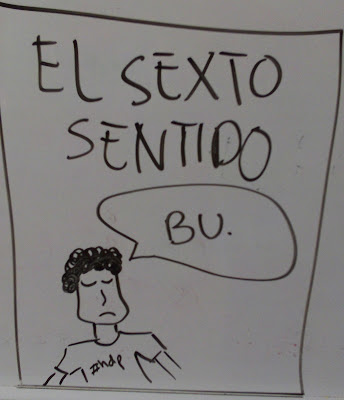 EL SEXTO
SENTIDO
BU.
#ndp